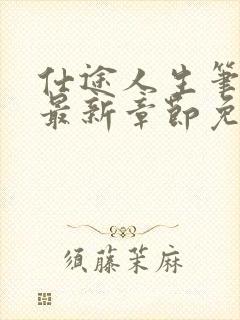 仕途人生筆
最新章節免
須藤茉麻